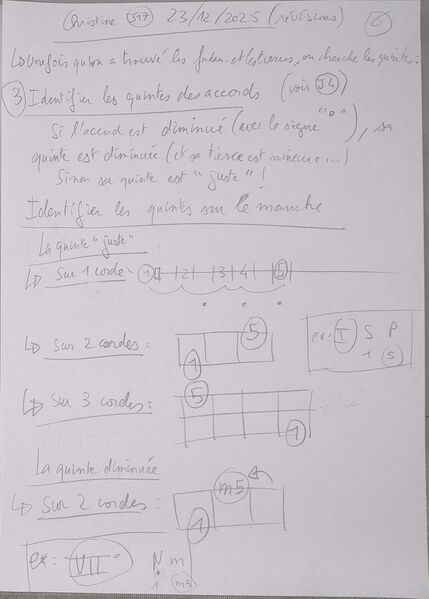 Christine J17 23/12/2025 (révisions) 6
↳ Une fois qu'on a trouvé les fondam. et les tierces, on cherche les quintes :
3 Identifier les quintes des accords (voir J4)
Si l'accord est diminué (avec le signe "o"), sa
quinte est diminuée (et sa tierce est mineure...)
Sinon sa quinte est "juste" !
Identifier les quintes sur le manche
La quinte "juste"
↳ Sur 1 corde = 1 2 3 4 5
↳ Sur 2 cordes = 5 1
ex : I S P
1 5
↳ Sur 3 cordes = 5 1
La quinte diminuée
↳ Sur 2 cordes = m5 1
ex : VII° N m
1 m5